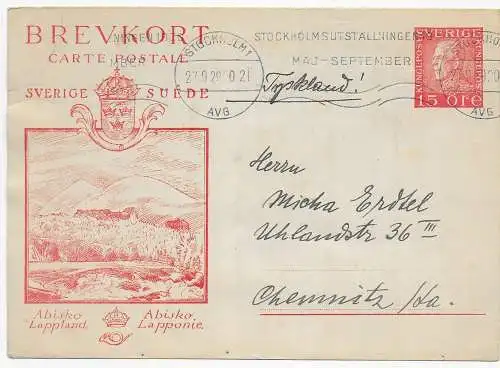 BREVKORT
CARTE POSTALE
SVERIGE SUÈDE
STOCKHOLM 1
27.9.29
AVG
STOCKHOLMSUTSTÄLLNINGEN
MAJ-SEPTEMBER
SVERIGE
KUNGL. POST
15 ÖRE
Tyskland!
Herrn
Micha Erdtel
Uhlandstr 36 III
Chemnitz /Sa.
Abisko Lappland.
Abisko Laponie.